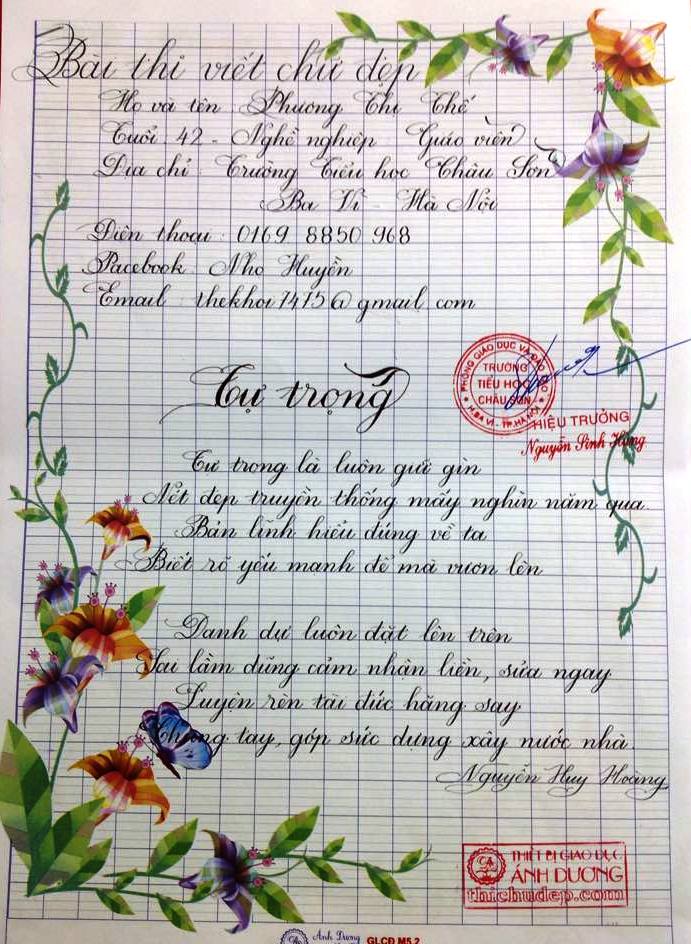 Bài thi viết chữ đẹp
Họ và tên : Phương Thị Thế
Tuổi 42 - Nghề nghiệp : Giáo viên
Địa chỉ : Trường Tiểu học Châu Sơn
Ba Vì - Hà Nội
Điện thoại : 0169 8850 968
Facebook : Nho Huyền
Email : thekhoi7475@gmail.com
Tự trọng
PHÒNG GIÁO DỤC VÀ ĐÀO TẠO
TRƯỜNG
TIỂU HỌC
CHÂU SƠN
H.BA VÌ - TP.HÀ NỘI
HIỆU TRƯỞNG
Nguyễn Sinh Hùng
Tự trọng là luôn giữ gìn
Nét đẹp truyền thống mấy nghìn năm qua.
Bản lĩnh hiểu đúng về ta
Biết rõ yếu mạnh để mà vươn lên
Danh dự luôn đặt lên trên
Sai lầm dũng cảm nhận liền, sửa ngay
Luyện rèn tài đức hăng say
Chung tay, góp sức dựng xây nước nhà.
Nguyễn Huy Hoàng
THIẾT BỊ GIÁO DỤC
ÁNH DƯƠNG
thichudep.com
Ánh Dương GLCĐ M5.2